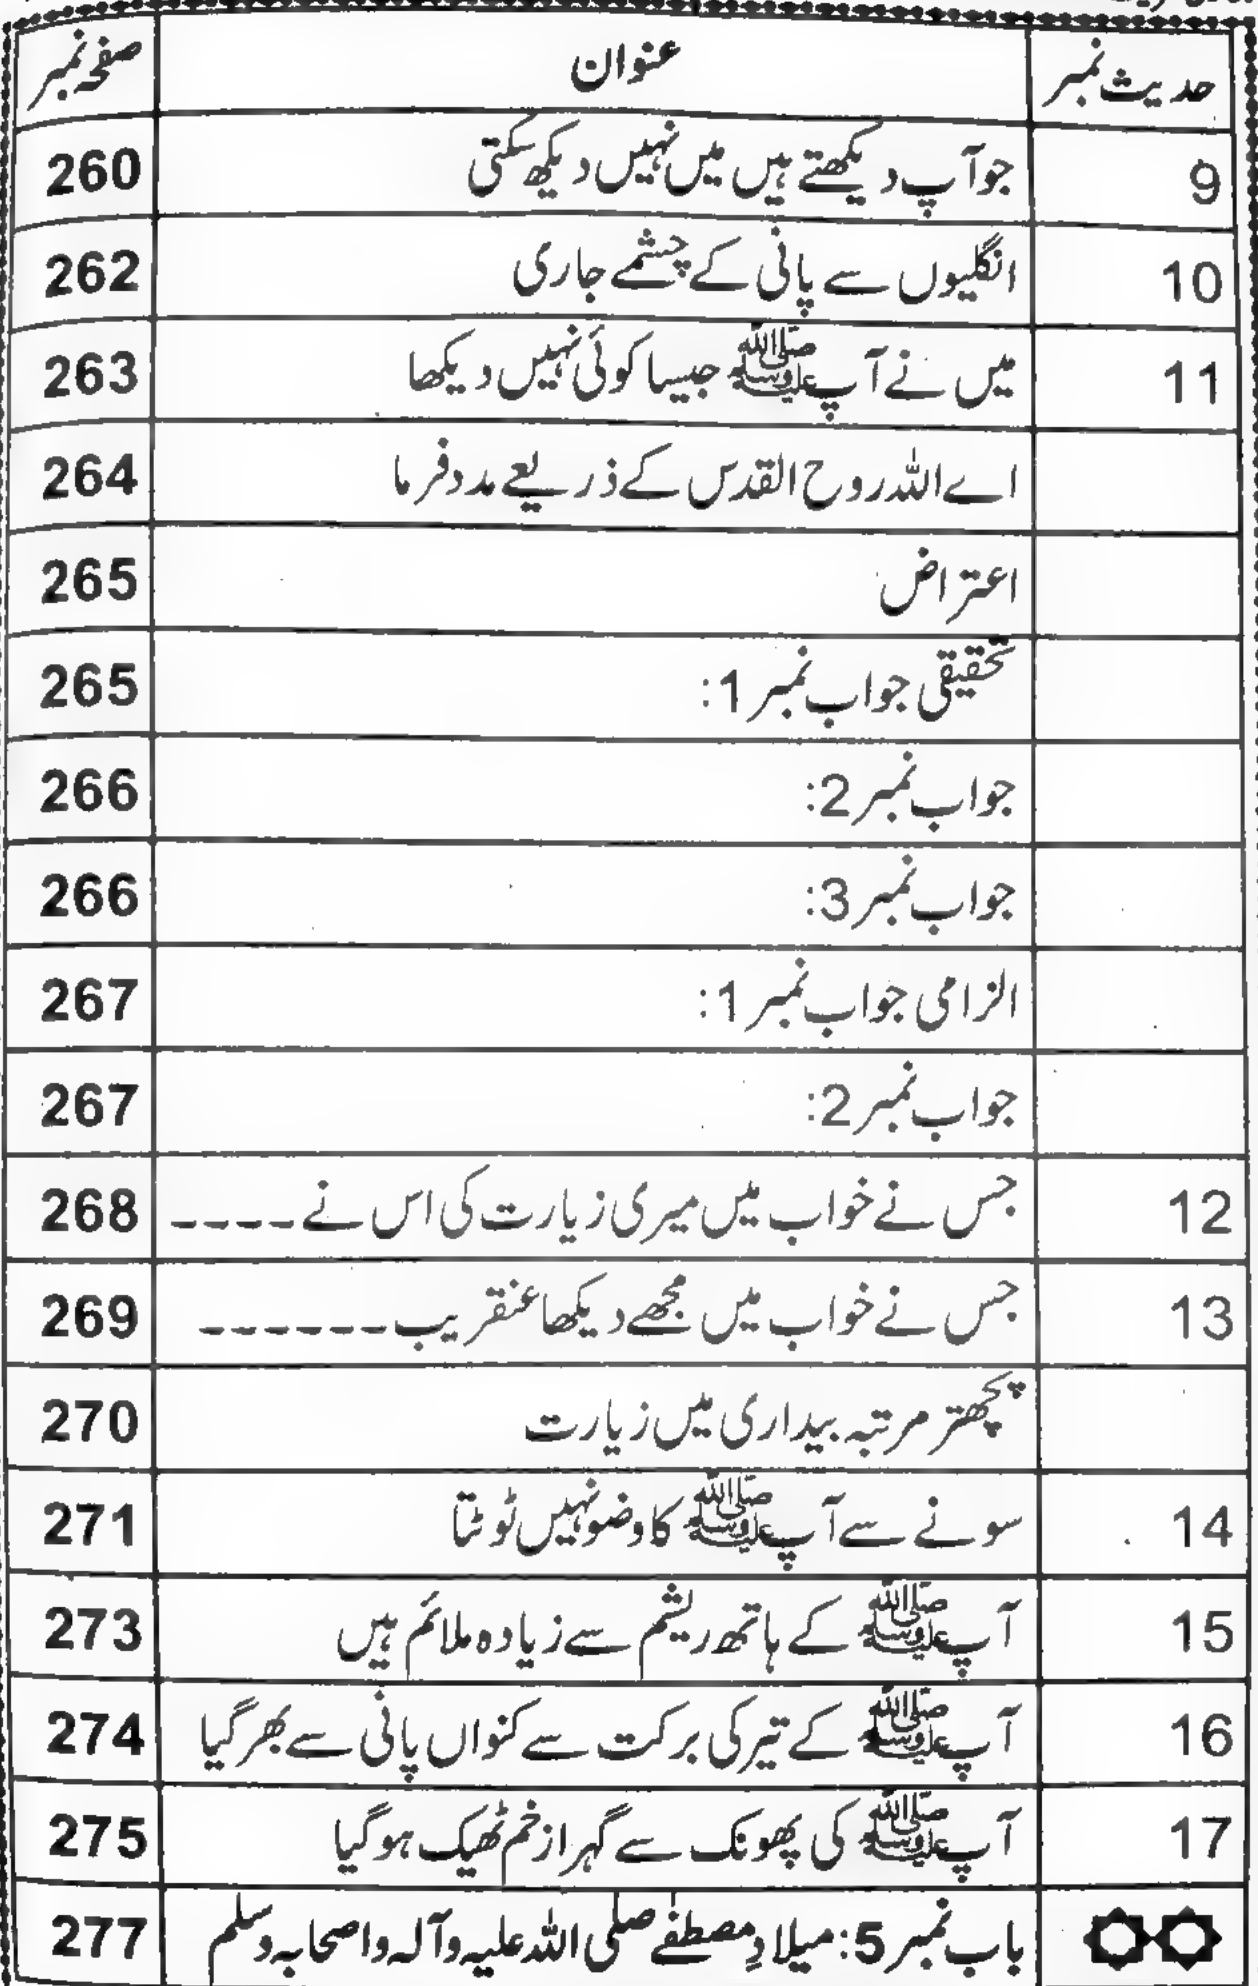 حدیث نمبر عنوان صفحہ نمبر
9 جو آپ دیکھتے ہیں میں نہیں دیکھ سکتی 260
10 انگلیوں سے پانی کے چشمے جاری 262
11 میں نے آپ ﷺ جیسا کوئی نہیں دیکھا 263
اے اللہ روح القدس کے ذریعے مدد فرما 264
اعتراض 265
تحقیقی جواب نمبر 1: 265
جواب نمبر 2: 266
جواب نمبر 3: 266
الزامی جواب نمبر 1: 267
جواب نمبر 2: 267
12 جس نے خواب میں میری زیارت کی اس نے ۔۔۔۔ 268
13 جس نے خواب میں مجھے دیکھا عنقریب ۔۔۔۔۔۔ 269
پچھتر مرتبہ بیداری میں زیارت 270
14 سونے سے آپ ﷺ کا وضو نہیں ٹوٹتا 271
15 آپ ﷺ کے ہاتھ ریشم سے زیادہ ملائم ہیں 273
16 آپ ﷺ کے تیر کی برکت سے کنواں پانی سے بھر گیا 274
17 آپ ﷺ کی پھونک سے گہرا زخم ٹھیک ہو گیا 275
باب نمبر 5: میلادِ مصطفٰے صلی اللہ علیہ وآلہ واصحابہ وسلم 277